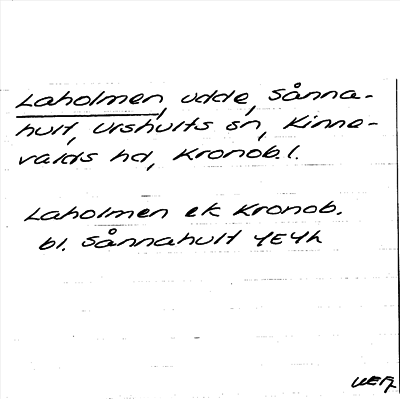 Laholmen, udde, Sånna-
hult, Urshults sn, Kinne-
valds hd, Kronob. l.
Laholmen ek Kronob.
bl. Sånnahult 4E4h